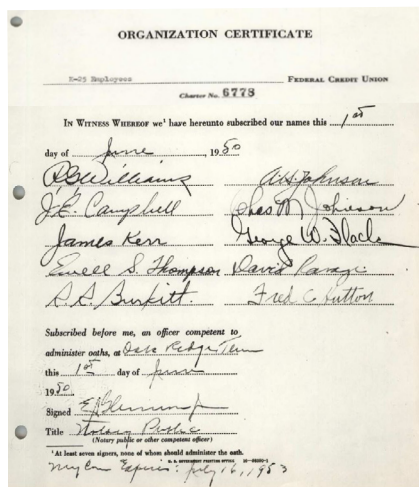 ORGANIZATION CERTIFICATE
K-25 Employees FEDERAL CREDIT UNION
Charter No. 6778
IN WITNESS WHEREOF we¹ have hereunto subscribed our names this 1st
day of June, 1950
R.G. Williams A.H. Johnson
J.E. Campbell Chas M Johnson
James Kerr George W. Flack
Ewell S. Thompson David
Fred C Hutton
Subscribed before me, an officer competent to
administer oaths, at Oak Ridge Tenn
this 1st day of June
1950.
Signed
Title Notary Public
(Notary public or other competent officer)
¹At least seven signers, none of whom should administer the oath.
U. S. GOVERNMENT PRINTING OFFICE
My Com Expires: July 16, 1953